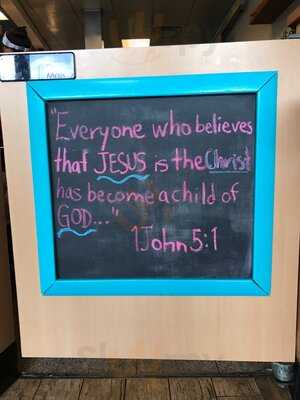 "Everyone who believes
that JESUS is the Christ
has become a child of
GOD..."
1 John 5:1